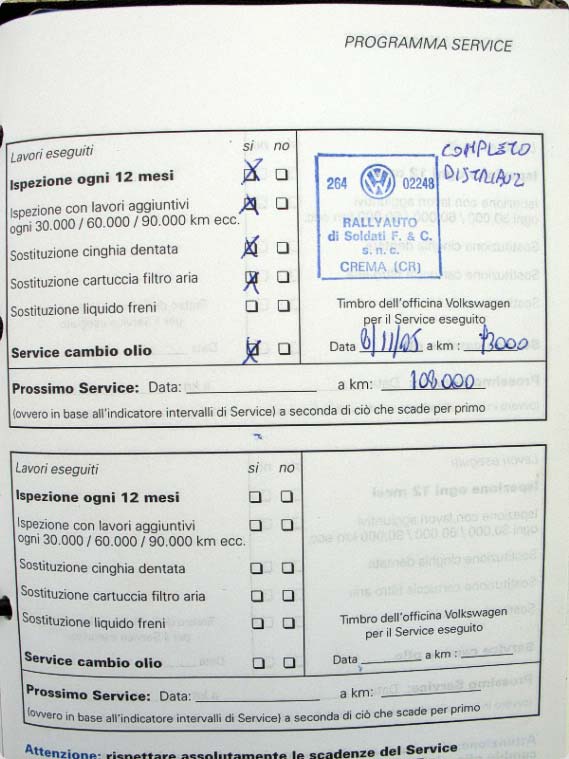 PROGRAMMA SERVICE
Lavori eseguiti si no
Ispezione ogni 12 mesi
Ispezione con lavori aggiuntivi
ogni 30.000 / 60.000 / 90.000 km ecc.
Sostituzione cinghia dentata
Sostituzione cartuccia filtro aria
Sostituzione liquido freni
Service cambio olio
COMPLETO
264 02248
RALLYAUTO
di Soldati F. & C.
s.n.c.
CREMA (CR)
Timbro dell'officina Volkswagen
per il Service eseguito
Data /11/05 a km :
Prossimo Service: Data: a km:
(ovvero in base all'indicatore intervalli di Service) a seconda di ciò che scade per primo
Lavori eseguiti si no
Ispezione ogni 12 mesi
Ispezione con lavori aggiuntivi
ogni 30.000 / 60.000 / 90.000 km ecc.
Sostituzione cinghia dentata
Sostituzione cartuccia filtro aria
Sostituzione liquido freni
Service cambio olio
Timbro dell'officina Volkswagen
per il Service eseguito
Data a km :
Prossimo Service: Data: a km:
(ovvero in base all'indicatore intervalli di Service) a seconda di ciò che scade per primo
Attenzione: rispettare assolutamente le scadenze del Service